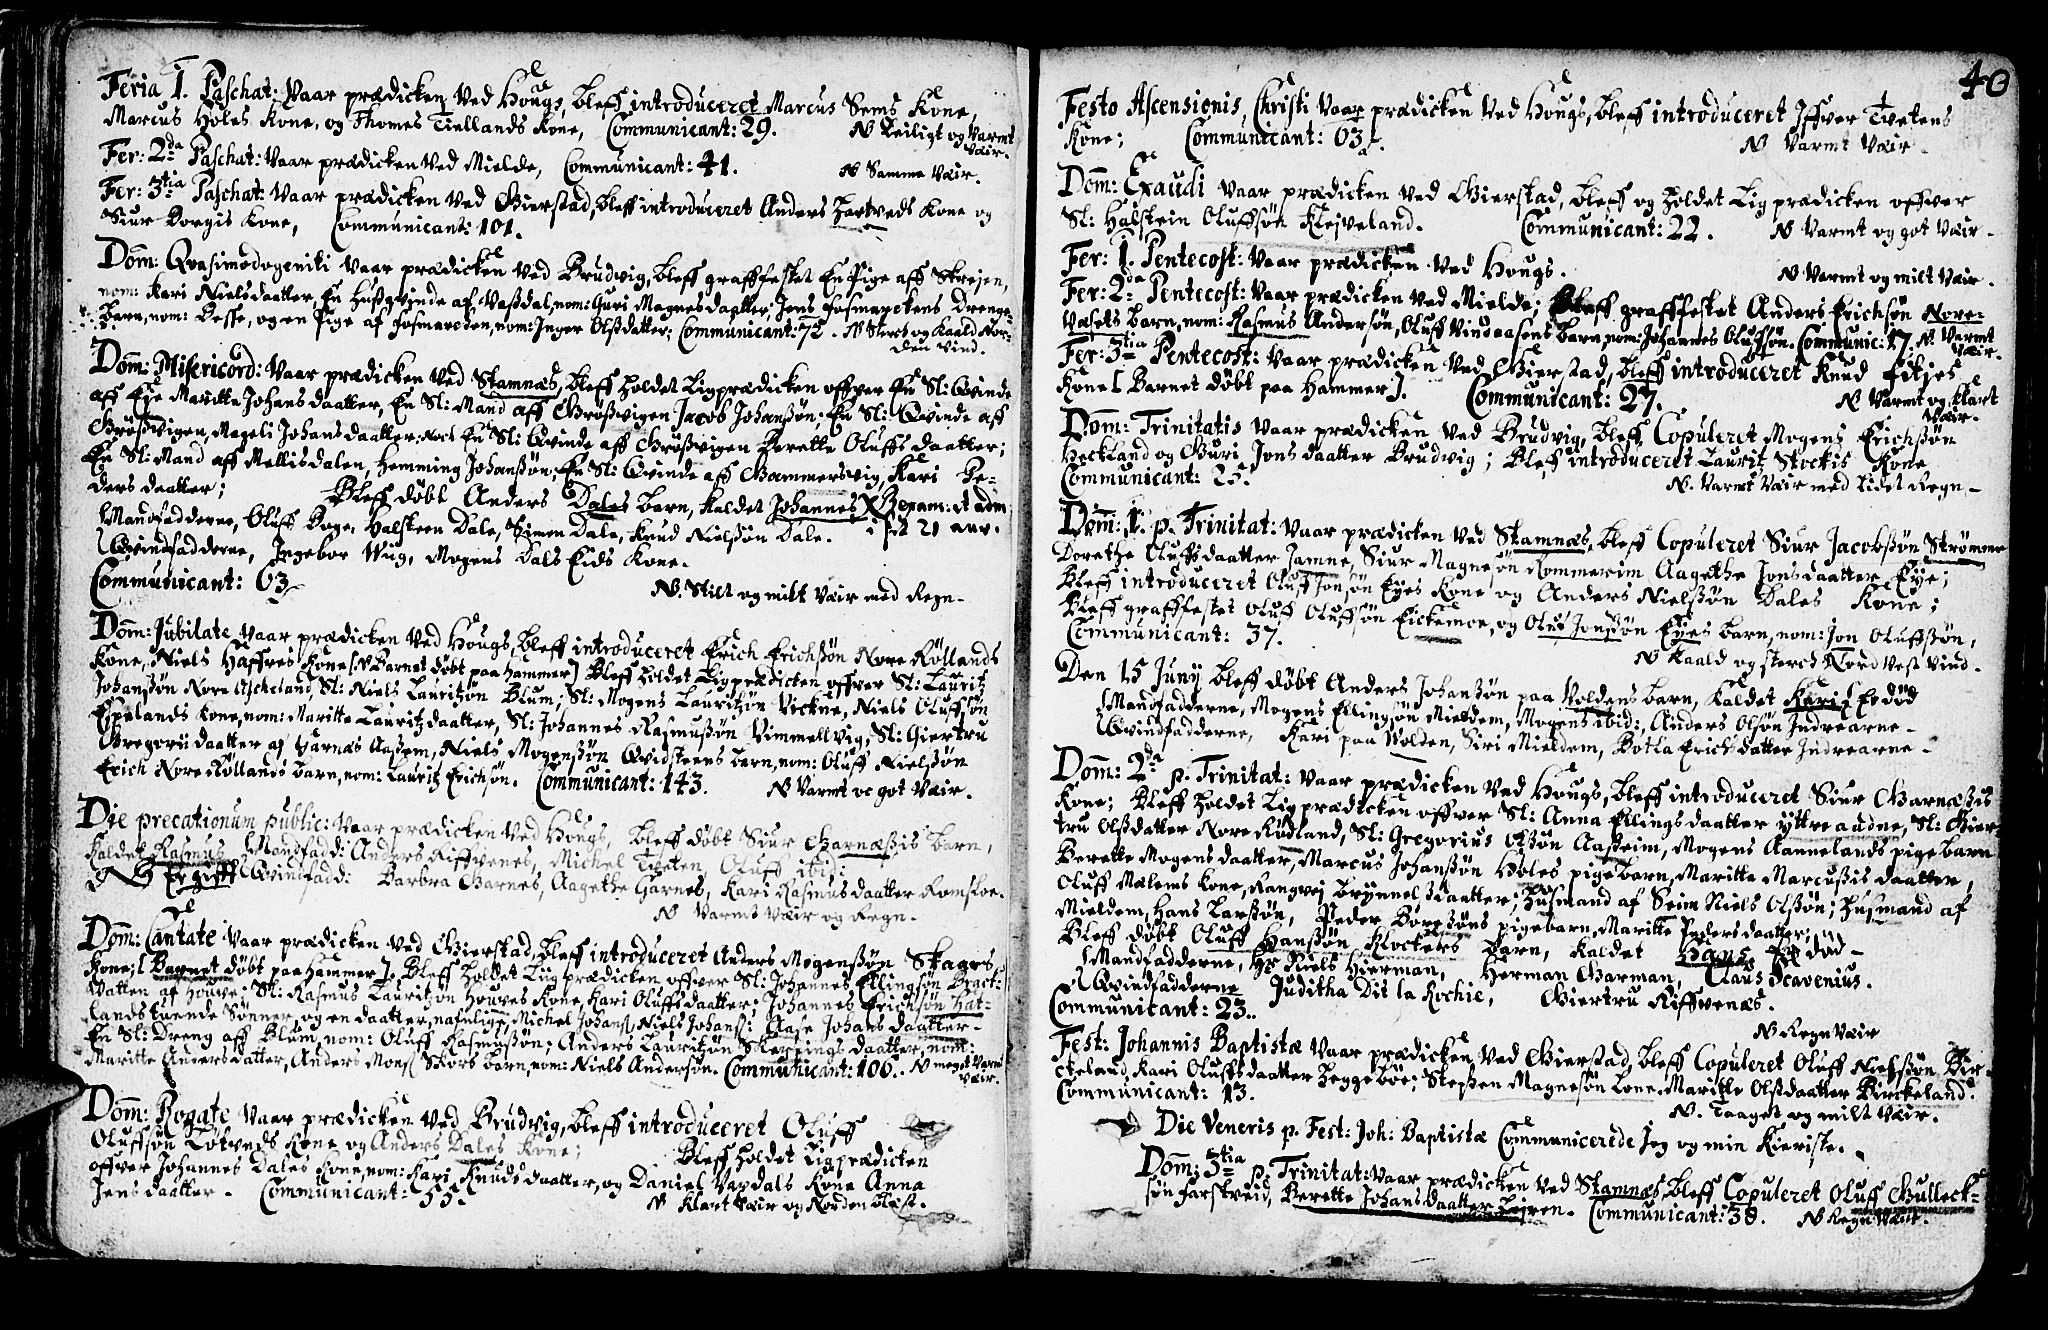 Feria 1. Paschat: Vaar prædicken Ved Hougs, bleff introduceret Marcus Sems Kone,
Marcus Holes Kone, og Thomes Tiellands Kone, Communicant: 29. NB Leiligt og Varmt
Vær.
Fer: 2da Paschat: Vaar prædicken Ved Mielde, Communicant: 41. NB Samme Vær.
Fer: 3tia Paschat: Vaar prædicken Ved Gierstad, bleff introduceret Anders Hartveds Kone og
Siur Kone, Communicant: 101.
Dom: Qvasimodogeniti Vaar prædicken Ved Brudvig, bleff graffestet En Pige aff
nom: Kari Nielsdaatter, En Hußqvinde af Vaßdal, nom: Guri Magnes daatter, Jens Drenge
barn, nom: Besse, og en Pige af nom: Inger Olßdatter; Communicant: 72. NB Sterch og Kaald Nor-
den Vind.
Dom: Misericord: Vaar prædicken Ved Stamnæs, bleff holdet Ligprædicken offver En Sl: Qvinde
aff Eye Maritte Johans daatter, En Sl: Mand aff Großvigen Jacob Johanßön; En Sl: Qvinde aff
Großvigen, Mageli Johans daatter; En Sl: Qvinde aff Großvigen Berette Oluffs daatter;
En Sl: Mand aff Mellisdalen, Hemming Johanßön; En Sl: Qvinde aff Gammersvig, Kari Pe-
ders daatter; Bleff döbt Anders Dales barn, Kaldet Johannes
Mandfadderne, Oluff Boge, Halsteen Dale, Simon Dale, Knud Nielßön Dale. i sit 21 aar.
Qvindfadderne, Ingebor Wug, Mogens Dals Eids Kone.
Communicant: 63 NB. Stilt og milt Vær med Regn.
Dom: Jubilate Vaar prædicken Ved Hougs, bleff introduceret Erich Erichßön Nore Röllands
Kone, Niels Haffres Kone [NB Barnet döbt paa Hammer] Bleff holdet Ligprædicken offver Sl: Lauritz
Johanßön Nore Ascheland, Sl: Niels Lauritzön Blum, Sl: Mogens Lauritzön Vickne, Niels Oluffsön
Espelands Kone, nom: Maritte Lauritz daatter, Sl: Johannes Rasmußön Vimmellvig, Sl: Giertru
Gregorii daatter af Garnæs Aaßem, Niels Mogenßön Qvidsteens barn, nom: Oluff Nielßön
Erich Nore Röllands barn, nom: Lauritz Erichsön. Communicant: 143. NB Varmt oc got Vær.
Die precationum public: Vaar prædicken Ved Hougs, bleff döbt Siur Garnæßis barn,
Kaldet Rasmus Mandfadd: Anders Riffvenes, Michel Tveten Oluff ibid:
NB Er gifft Qvindfadd: Barbra Garnes, Aagethe Garnes, Kari Rasmus daatter Romsloe.
NB Varmt Vær og Regn.
Dom: Cantate Vaar prædicken Ved Gierstad, bleff introduceret Anders Mogenßön Skages
Kone; [Barnet döbt paa Hammer]. Bleff holdet Ligprædicken offver Sl: Johannes Ellingßön
Vatten af Houve, Sl: Rasmus Lauritzön Houves Kone, Kari Oluffs daatter; Johannes Erichsön Hat-
lands tuende Sönner, og en daatter, nafnlig: Michel Johans, Niels Johans: Aase Johans daatter.
En Sl: Dreng aff Blum, nom: Oluff Rasmußön; Anders Lauritzön daatter, nom:
Maritte Anders datter, Anders Mons Skors barn, nom: Niels Andersön. Communicant: 106. NB meget Varmt
Vær.
Dom: Rogate Vaar prædicken Ved Brudvig, bleff introduceret Oluff
Oluffsön Kone og Anders Dales Kone; Bleff holdet Ligprædicken
offver Johannes Dales Kone, nom: Kari Knuds daatter, og Daniel Vaxdals Kone Anna
Jens daatter. Communicant: 55. NB Klart Vær og Norden blæst.
40
Festo Ascensionis Christi Vaar prædicken Ved Hougs, bleff introduceret Iffver Tvetens
Kone; Communicant: 63. NB Varmt Vær.
Dom: Exaudi Vaar prædicken Ved Gierstad, bleff og holdet Ligprædicken offver
Sl: Halstein Oluffsön Klejveland. Communicant: 22. NB Varmt og got Vær.
Fer: 1. Pentecost: Vaar prædicken Ved Hougs. NB Varmt og milt Vær.
Fer: 2da Pentecost: Vaar prædicken Ved Mielde; Bleff graffestet Anders Erichsön Nore-
Væsets barn, nom: Rasmus Andersön, Oluff Vindaasens barn, nom: Johannes Olufßön. Communic: 17. NB Varmt
Vær.
Fer: 3tia Pentecost: Vaar prædicken Ved Gierstad, bleff introduceret Knud Fitjes
Kone [Barnet döbt paa Hammer]. Communicant: 27. NB Varmt og klart
Vær.
Dom: Trinitatis Vaar prædicken Ved Brudvig, bleff Copuleret Mogens Erichßön
Heckland og Guri Jons daatter Brudvig; Bleff introduceret Lauritz Stockis Kone
Communicant: 25. NB. Varmt Vær med Lidet Regn.
Dom: 1. p. Trinitat: Vaar prædicken Ved Stamnæs, bleff Copuleret Siur Jacobßön Strömme
Dorethe Oluffs daatter Jamne, Siur Magnesön Rommerim Aagethe Jons daatter Eye;
Bleff introduceret Oluff Jonsön Eyes Kone og Anders Nielßön Dales Kone;
Bleff graffestet Oluff Oluffsön Eickemoe, og Oluf Jonßön Eyes barn, nom: Jon Olufßön,
Communicant: 37. NB Kaald og sterch Nord Vest Vind.
Den 15 Juny bleff döbt Anders Johanßön paa Voldens barn, Kaldet Kari Er död
Mandfadderne, Mogens Ellingsön Mieldem, Mogens ibid:, Anders Olsön Indrearne.
Qvindfadderne, Kari paa Volden, Siri Mieldem, Botla Erichs datter Indrearne.
Dom: 2da p. Trinitat: Vaar prædicken Ved Hougs, bleff introduceret Siur Garnæßis
Kone; Bleff holdet Ligprædicken offver Sl: Anna Ellings daatter Yttreaadne, Sl: Gier-
tru Olßdatter Nore Rödland, Sl: Gregorius Olsön Aaßeim, Mogens Aannelands pigebarn
Berette Mogens daatter, Marcus Johanßön Holes pigebarn, Maritte Marcußis daatter,
Oluff Mælems Kone, Rangvej Brynnels daatter; Husmand af Seim Niels Olßön; Husmand af
Mieldem, Hans Larßön, Peder Börgeßöns pigebarn, Maritte Peders daatter;
Bleff döbt Oluff Hanßön Klockers Barn, Kaldet Hans. Er död.
Mandfadderne, Hr Niels Hierman, Herman Garman, Claus Scavenius.
Qvindfadderne Juditha Dit la Rochie, Giertru Riffvenæs.
Communicant: 23. NB Regn Vær
Fest: Johannis Baptistæ Vaar prædicken Ved Gierstad, bleff Copuleret Oluff Nielßön Bir-
ckeland, Kari Oluffs daatter Heggeböe; Stephen Magnesön Lone, Maritte Olßdaatter Birckeland.
Communicant: 13. NB. Taaget og milt Vær.
Die Veneris p. Fest: Joh: Baptistæ Communicerede Jeg og min Kieriste.
Dom: 3tia p. Trinitat: Vaar prædicken Ved Stamnæs, bleff Copuleret Oluff Gulleck-
sön Farstveid, Berette Johans daatter Leiren. Communicant: 38. NB Regn Vær.